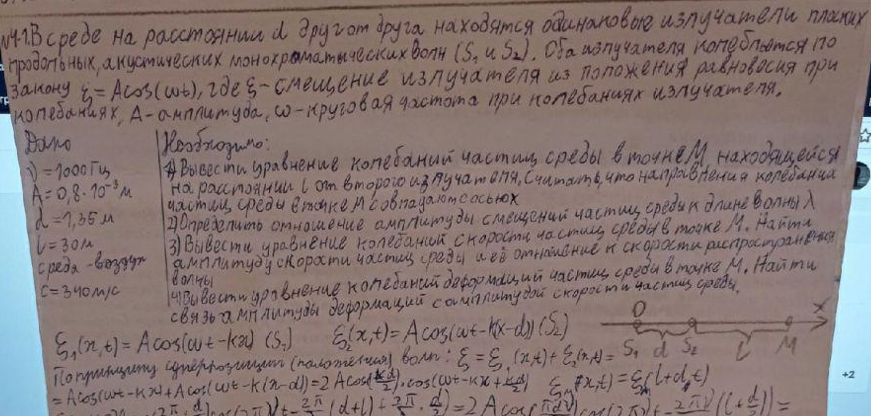 №4-1. В среде на расстоянии d друг от друга находятся одинаковые излучатели плоских
продольных, акустических монохроматических волн (S₁ и S₂). Оба излучателя колеблются по
закону ξ=Acos(ωt), где ξ-смещение излучателя из положения равновесия при
колебаниях, A-амплитуда, ω-круговая частота при колебаниях излучателя.
Дано
ν=1000Гц
A=0,8·10⁻³м
d=1,35м
l=30м
среда-воздух
c=340м/с
Необходимо:
1) Вывести уравнение колебаний частиц среды в точке M, находящейся
на расстоянии l от второго излучателя, считать, что направления колебания
частиц среды в точке M совпадают с осью x
2) Определить отношение амплитуды смещений частиц среды к длине волны λ
3) Вывести уравнение колебаний скорости частиц среды в точке M. Найти
амплитуду скорости частиц среды и её отношение к скорости распространения
волны
4) Вывести уравнение колебаний деформаций частиц среды в точке M. Найти
связь амплитуды деформаций с амплитудой скорости частиц среды.
O x
S₁ d S₂ l M
ξ₁(x,t)=Acos(ωt-kx) (S₁) ξ₂(x,t)=Acos(ωt-k(x-d)) (S₂)
По принципу суперпозиции (положения) волн: ξ=ξ₁(x,t)+ξ₂(x,t)=
=Acos(ωt-kx)+Acos(ωt-k(x-d))=2Acos(kd/2)·cos(ωt-kx+kd/2) ξ(x,t)=ξ(l+d,t)
+2